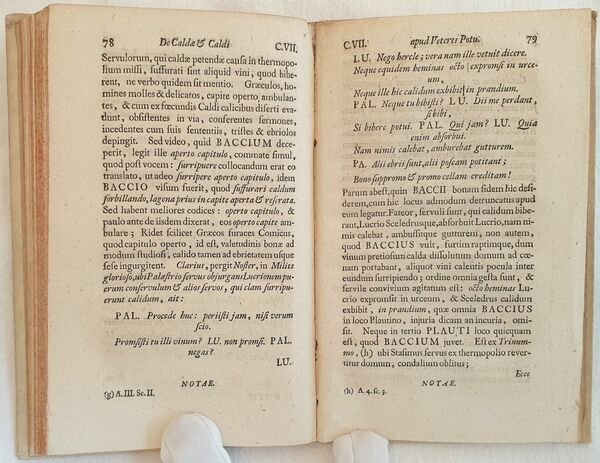 78 De Caldæ & Caldi C.VII.
Servulorum, qui caldæ petendæ causa in thermopo-
lium missi, suffurati sint aliquid vini, quod bibe-
rent, ne verbo quidem sit mentio. Græculos, ho-
mines molles & delicatos, capite operto ambulan-
tes, & cum ex fœcundis Caldi calicibus diserti eva-
dunt, obsistentes in via, conferentes sermones,
incedentes cum suis sententiis, tristes & ebriolos
depingit. Sed video, quid BACCIUM dece-
perit, legit ille aperto capitulo, commate simul,
quod post vocem: surripuere collocandum erat to
translato, ut adeo surripere aperto capitulo, idem
BACCIO visum fuerit, quod suffurari caldum
sorbillando, lagena prius in capite aperta & reserata.
Sed habent meliores codices: operto capitulo, &
paulo ante de iisdem dixerat, eos operto capite am-
bulare; Ridet scilicet Græcos furaces Comicus,
quod capitulo operto, id est, valetudinis bonæ ad
modum studiosi, calido tamen ad ebrietatem usque
sese ingurgitent. Clarius, pergit Noster, in Milite
glorioso, ubi Palæstrio servus objurgans Lucrionem pu-
erum conservulum & alios servos, qui clam surripu-
erunt calidum, ait:
PAL. Procede huc: periisti jam, nisi verum
scio.
Promsisti tu illi vinum? LU. non promsi. PAL.
negas?
LU.
NOTAE.
(g) A. III. Sc. II.
C.VII. apud Veteres Potu. 79
LU. Nego hercle; vera nam ille vetuit dicere.
Neque equidem heminas octo expromsi in urce-
um,
Neque ille hic calidum exhibit in prandium.
PAL. Neque tu bibisti? LU. Dii me perdant,
si bibi,
Si bibere potui. PAL. Qui jam? LU. Quia
enim absorbui.
Nam nimis calebat, amburebat gutturem.
PA. Alii ebrii sunt, alii poscam potitant;
Bono suppromo & promo cellam creditam!
Parum abest, quin BACCII bonam fidem hic desi-
derem, cum hic locus admodum detruncatus apud
eum legatur. Fateor, servuli sunt, qui calidum bibe-
rant, Lucrio Sceledrusque, absorbuit Lucrio, nam ni-
mis calebat, ambussitque gutturem, non autem,
quod BACCIUS vult, furtim raptimque, dum
vinum pretiosum caldæ dissolutum domum ad cœ-
nam portabant, aliquot vini calentis pocula inter
eundum surripiendo; ordine omnia gesta sunt, &
servile convivium agitatum est: octo heminas Lu-
crio expromsit in urceum, & Sceledrus calidum
exhibit, in prandium, quæ omnia BACCIUS
in loco Plautino, injuria dicam an incuria, omi-
sit. Neque in tertio PLAUTI loco quicquam
est, quod BACCIUM juvet. Est ex Trinum-
mo, (h) ubi Stasimus servus ex thermopolio rever-
titur domum, condalium oblitus;
Ecce
NOTAE.
(h) A. 4. sc. 3.